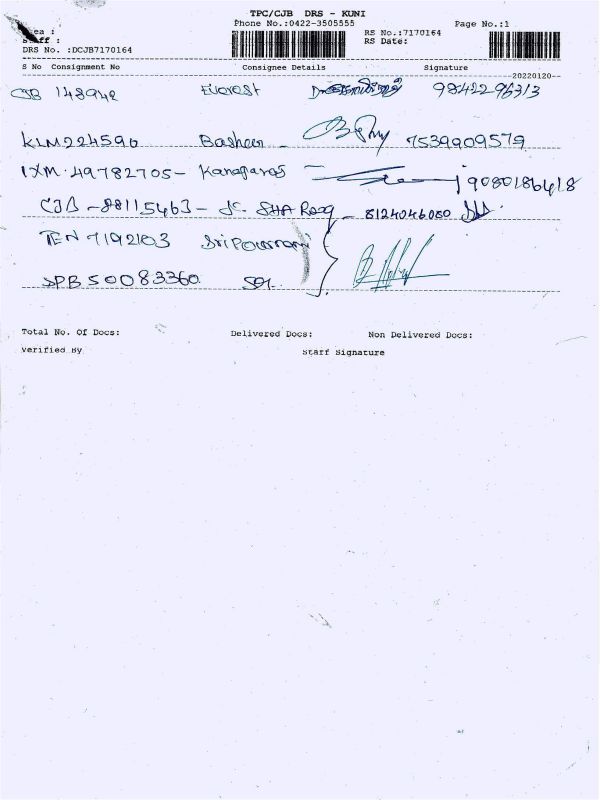 TPC/CJB DRS - KUNI
Phone No.:0422-3505555 Page No.:1
RS No.:7170164
RS Date:
DRS No. :DCJB7170164
S No Consignment No Consignee Details Signature
--20220120--
CJB 148942 Everest 9842296313
KLM224590 Basheer - 7539909579
IXM.49782705- 9080186418
CJB -88115463- SHA - 8124046080
TEN 7192103 Sri
SPB 50083360
Total No. Of Docs: Delivered Docs: Non Delivered Docs:
Verified By Staff Signature